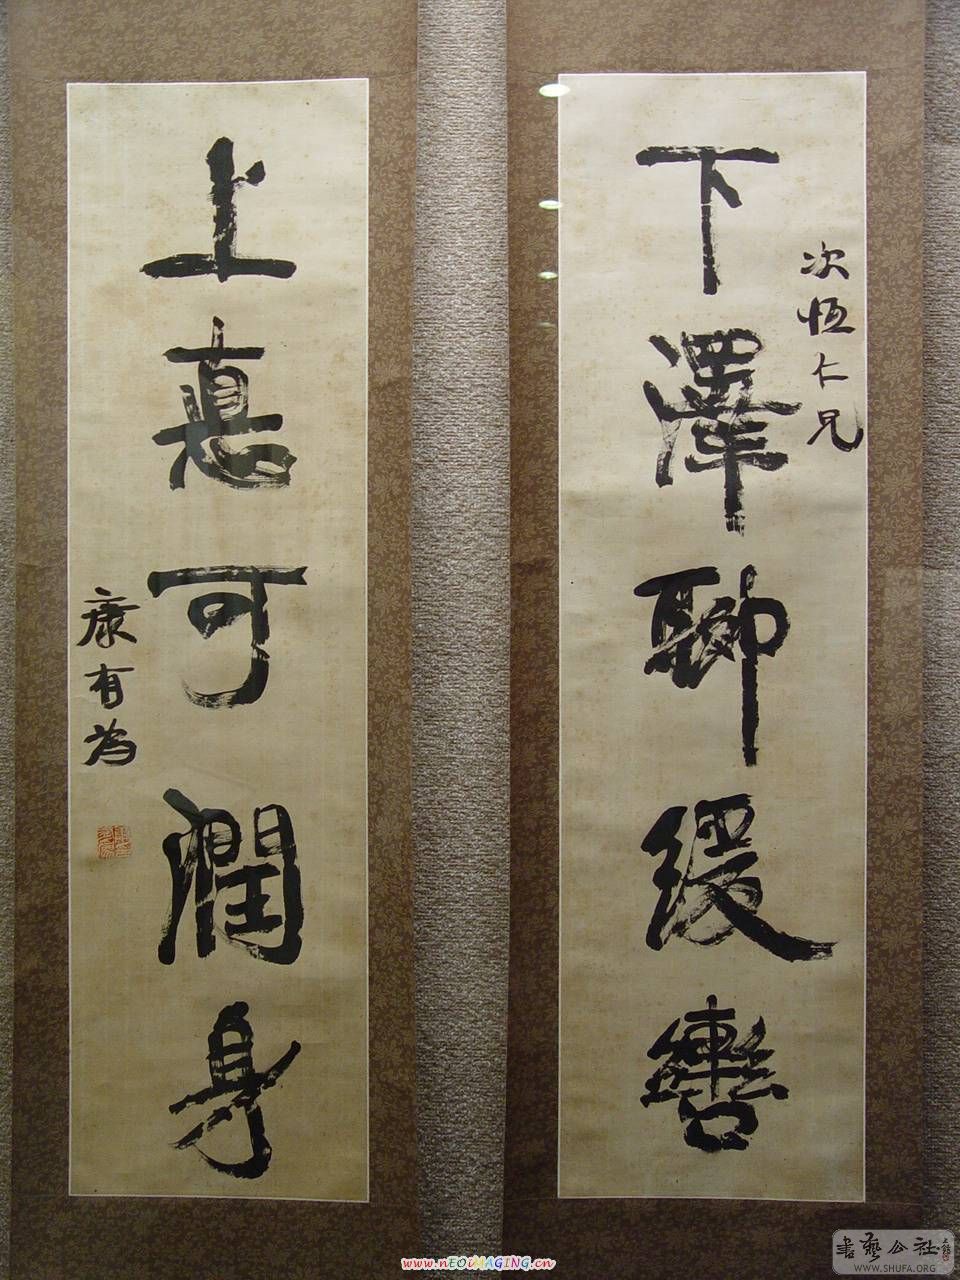 次恆仁兄
下澤聊緩轡
上悳可潤身
康有為
www.nEOiMAGING.cn
書藝公社
WWW.SHUFA.ORG